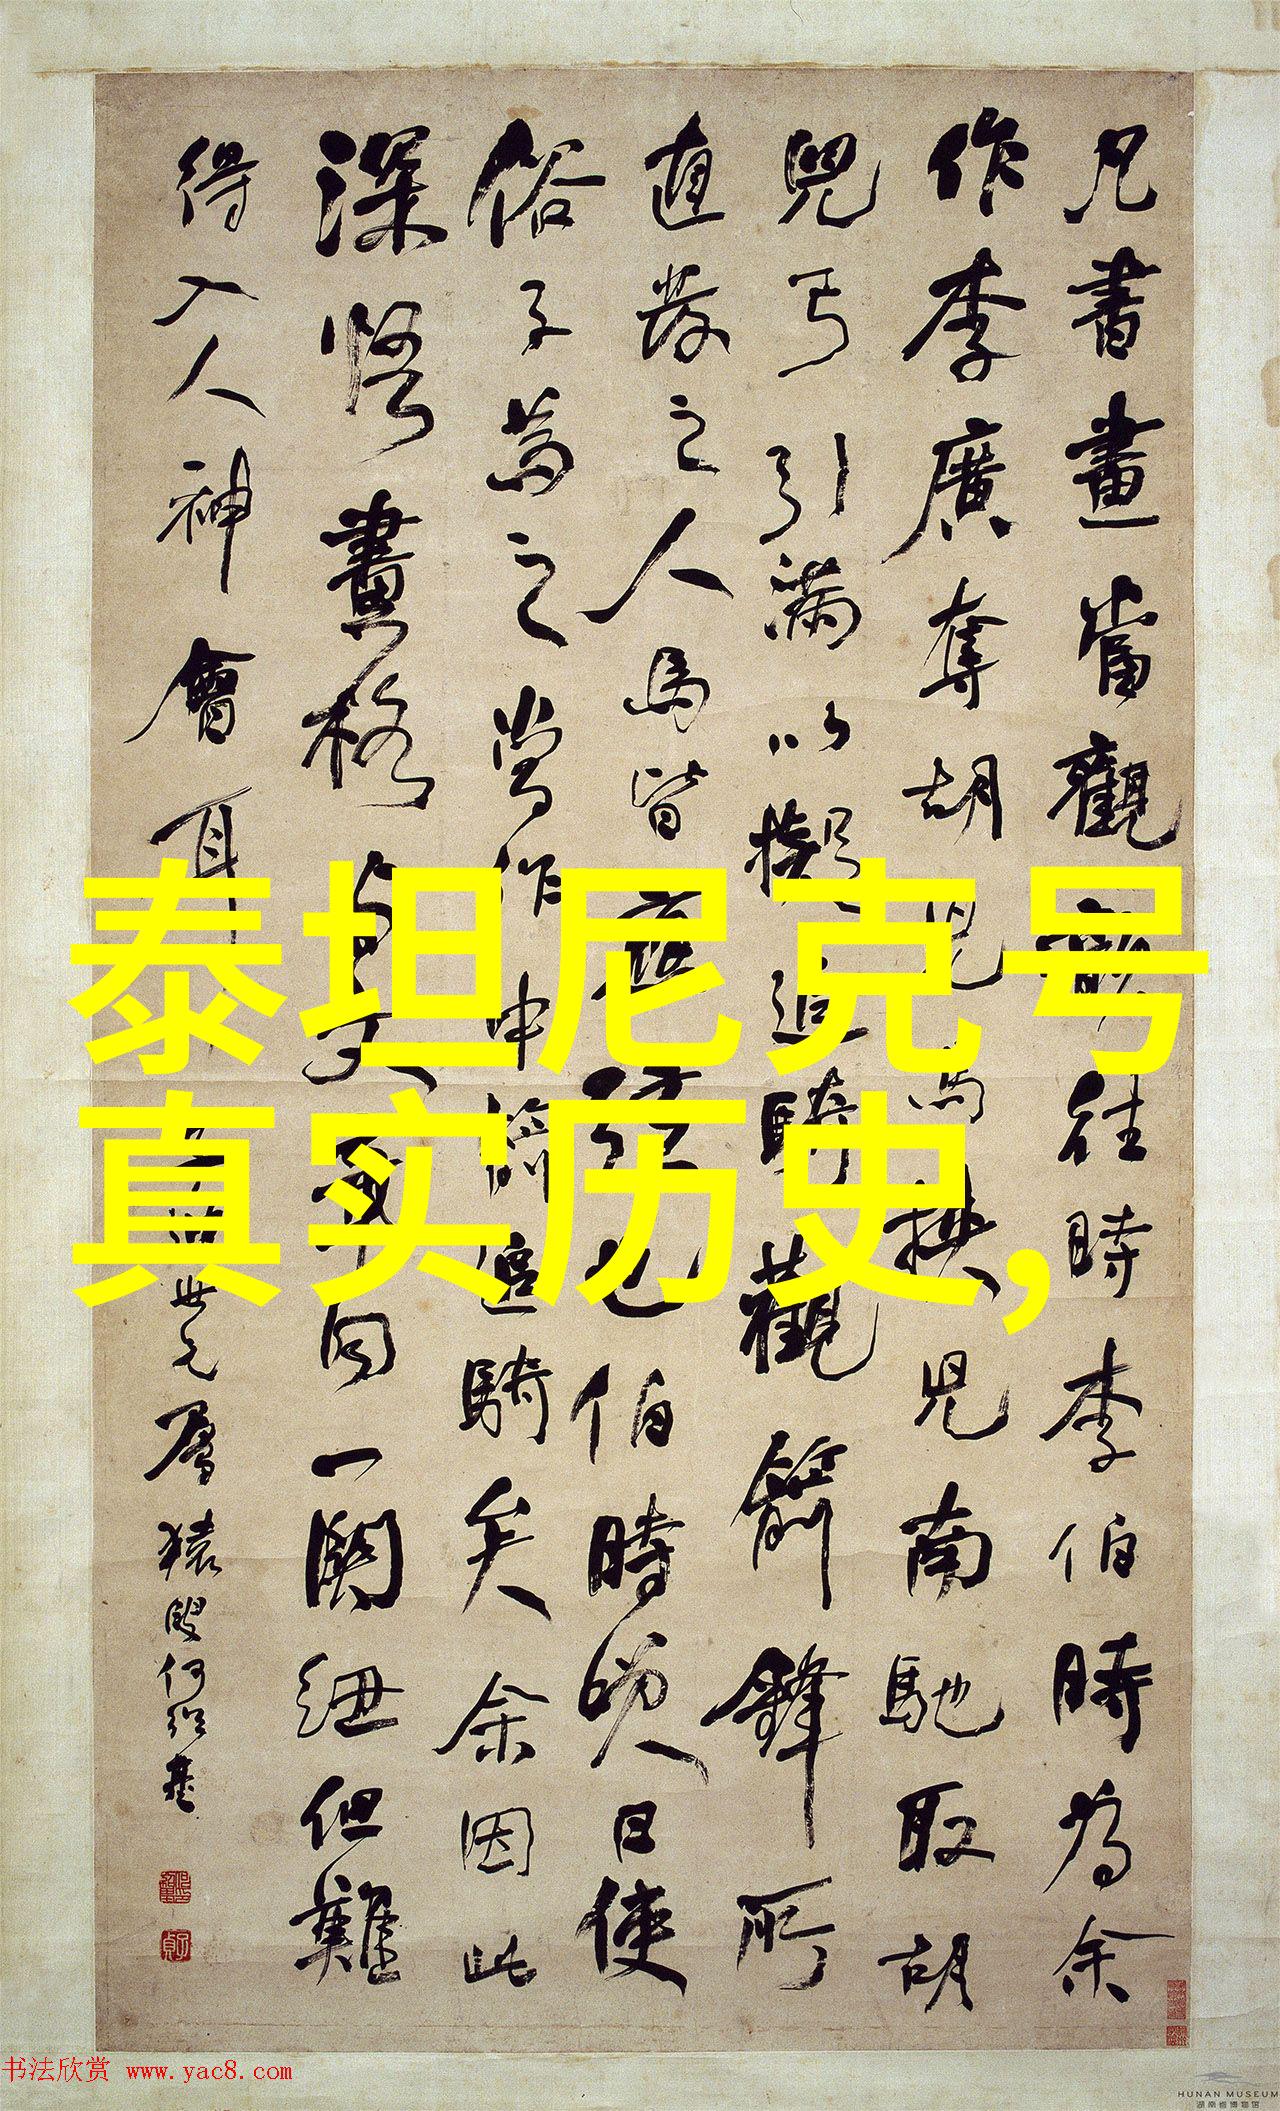 凡書畫當觀韻往時李伯時為余
作李廣奪胡兒馬挾兒南馳取胡
兒弓引滿以擬追騎觀箭鋒所
直發之人馬皆應弦也伯時笑曰使
俗子為之當作中箭追騎矣余因此
深悟畫格與文章同一關紐但難
得入人神會耳
世兄屬 猿叟何紹基
泰坦尼克号
真实历史,
书法欣赏 www.yac8.com
HUNAN MUSEUM
湖南省博物馆